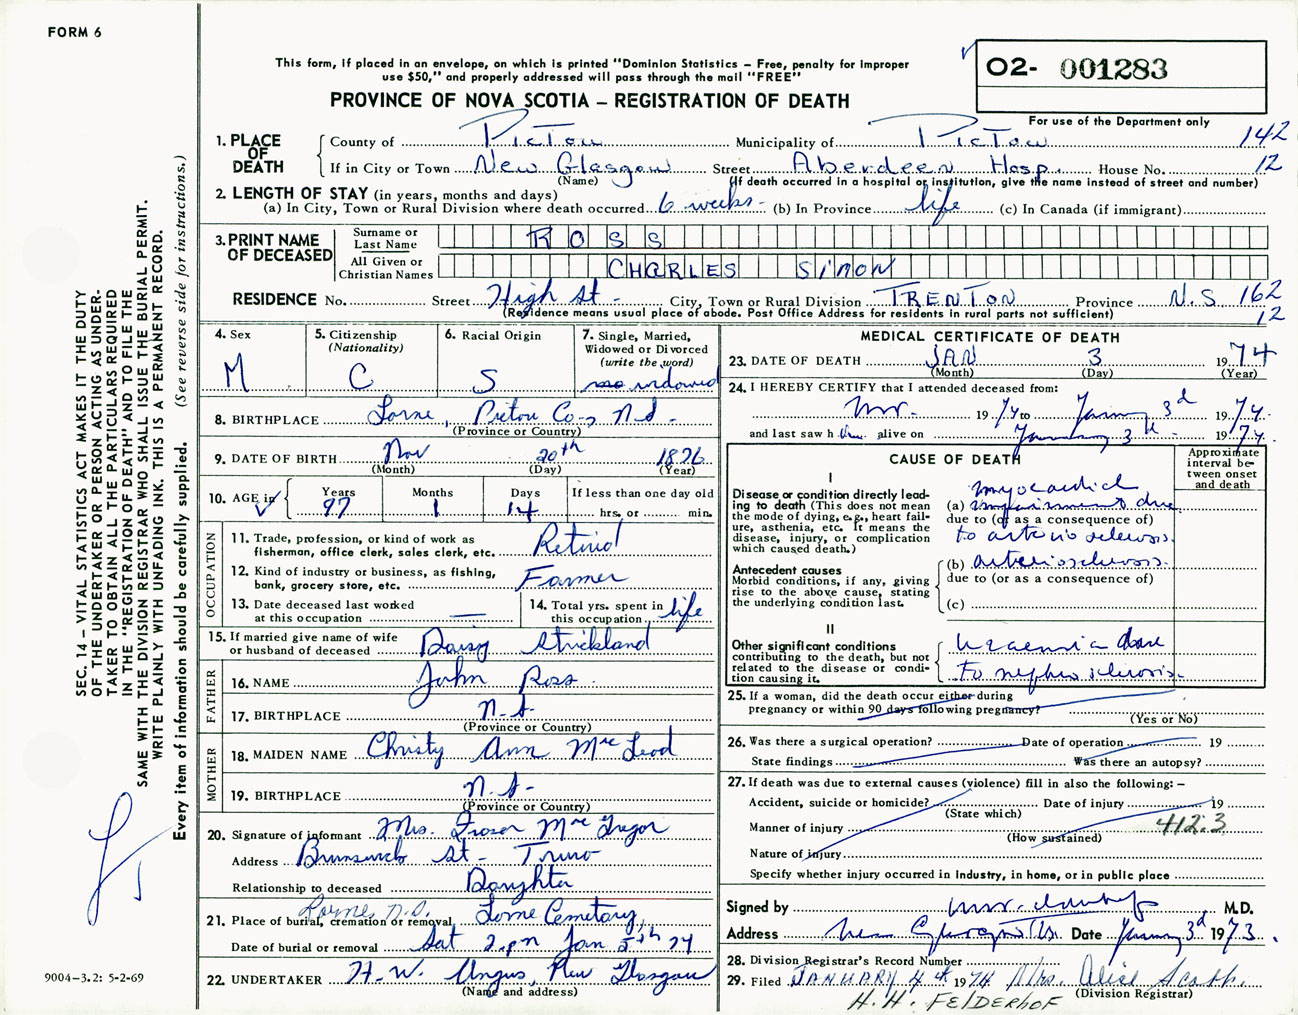 FORM 6
This form, if placed in an envelope, on which is printed "Dominion Statistics – Free, penalty for improper
use $50," and properly addressed will pass through the mail "FREE"
PROVINCE OF NOVA SCOTIA – REGISTRATION OF DEATH
02- 001283
For use of the Department only
SEC. 14 – VITAL STATISTICS ACT MAKES IT THE DUTY
OF THE UNDERTAKER OR PERSON ACTING AS UNDER-
TAKER TO OBTAIN ALL THE PARTICULARS REQUIRED
IN THE "REGISTRATION OF DEATH" AND TO FILE THE
SAME WITH THE DIVISION REGISTRAR WHO SHALL ISSUE THE BURIAL PERMIT.
WRITE PLAINLY WITH UNFADING INK. THIS IS A PERMANENT RECORD.
Every item of information should be carefully supplied. (See reverse side for instructions.)
1. PLACE OF DEATH
County of Pictou Municipality of Pictou 142
If in City or Town New Glasgow Street Aberdeen Hosp. House No. 12
(Name) (If death occurred in a hospital or institution, give the name instead of street and number)
2. LENGTH OF STAY (in years, months and days)
(a) In City, Town or Rural Division where death occurred 6 weeks - (b) In Province life (c) In Canada (if immigrant)
3. PRINT NAME OF DECEASED
Surname or Last Name ROSS
All Given or Christian Names CHARLES SIMON
RESIDENCE No. Street High St - City, Town or Rural Division TRENTON Province N.S 162
(Residence means usual place of abode. Post Office Address for residents in rural parts not sufficient) 12
4. Sex M
5. Citizenship (Nationality) C
6. Racial Origin S
7. Single, Married, Widowed or Divorced (write the word) widowed
8. BIRTHPLACE Lorne, Pictou Co-, N.S -
(Province or Country)
9. DATE OF BIRTH Nov 20th 1876
(Month) (Day) (Year)
10. AGE in Years 97 Months 1 Days 14 If less than one day old hrs. or min.
OCCUPATION
11. Trade, profession, or kind of work as fisherman, office clerk, sales clerk, etc. Retired
12. Kind of industry or business, as fishing, bank, grocery store, etc. Farmer
13. Date deceased last worked at this occupation —
14. Total yrs. spent in this occupation life
15. If married give name of wife or husband of deceased Daisy Strickland
FATHER
16. NAME John Ross
17. BIRTHPLACE N.S-
(Province or Country)
MOTHER
18. MAIDEN NAME Christy Ann McLeod
19. BIRTHPLACE N.S-
(Province or Country)
20. Signature of informant Mrs. Fraser McGregor
Address Brunswick St - Truro
Relationship to deceased Daughter
21. Place of burial, cremation or removal Lorne N.S. Lorne Cemetary,
Date of burial or removal Sat 2.pm Jan 5th 74
22. UNDERTAKER H.W. Angus, New Glasgow
(Name and address)
9004–3.2: 5-2-69
MEDICAL CERTIFICATE OF DEATH
23. DATE OF DEATH JAN 3 1974
(Month) (Day) (Year)
24. I HEREBY CERTIFY that I attended deceased from:
1974 to January 3d 1974.
and last saw h alive on January 3d 1974.
CAUSE OF DEATH
Approximate interval between onset and death
I
Disease or condition directly leading to death (This does not mean the mode of dying, e.g., heart failure, asthenia, etc. It means the disease, injury, or complication which caused death.)
(a) myocardial impairment due
due to (or as a consequence of)
to arterio sclerosis.
Antecedent causes
Morbid conditions, if any, giving rise to the above cause, stating the underlying condition last.
(b) arteriosclerosis.
due to (or as a consequence of)
(c)
II
Other significant conditions
contributing to the death, but not related to the disease or condition causing it.
uraemia due
to nephro sclerosis.
25. If a woman, did the death occur either during
pregnancy or within 90 days following pregnancy?
(Yes or No)
26. Was there a surgical operation? Date of operation 19
State findings Was there an autopsy?
27. If death was due to external causes (violence) fill in also the following: –
Accident, suicide or homicide? Date of injury 19
(State which)
Manner of injury 412.3
(How sustained)
Nature of injury
Specify whether injury occurred in industry, in home, or in public place
Signed by M.D.
Address New Glasgow N.S. Date January 3d 1973.
28. Division Registrar's Record Number
29. Filed JANUARY 4th 1974 Mrs. Alice
(Division Registrar)
H.H. FELDERHOF